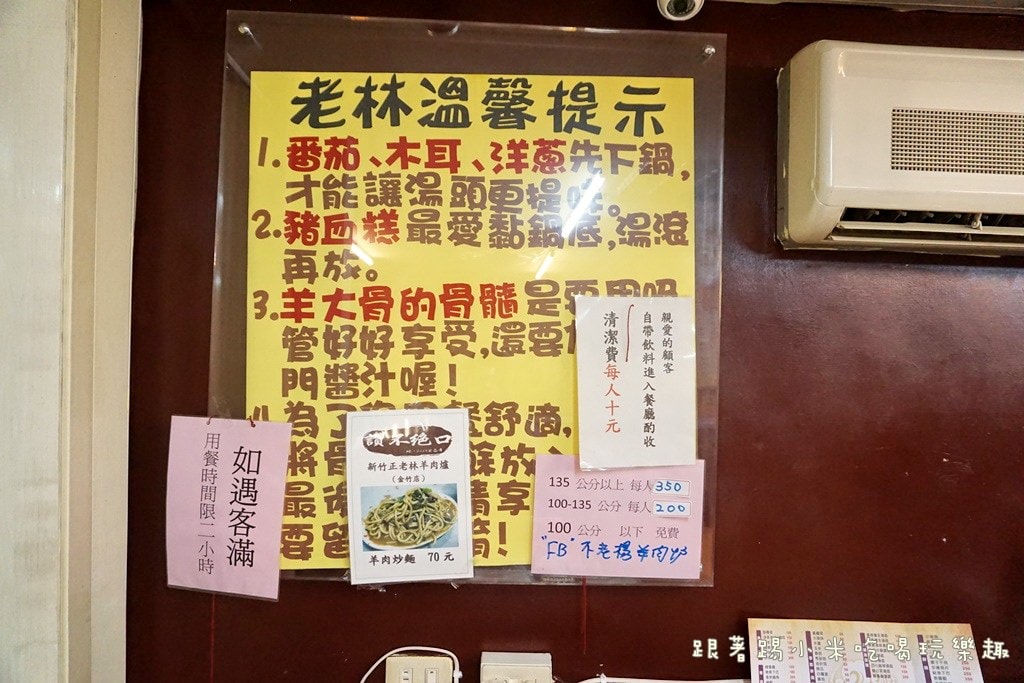 老林溫馨提示
1.番茄、木耳、洋蔥先下鍋,
才能讓湯頭更提味。
2.豬血糕最愛黏鍋底,湯滾
再放。
3.羊大骨的骨髓是要用吸
管好好享受,還要
門醬汁喔!
4.為了
舒適,
將骨
餘放
最後
精享
要留
親愛的顧客
自帶飲料進入餐廳酌收
清潔費每人十元
如遇客滿
用餐時間限二小時
讚不絕口
新竹正老林羊肉爐
(金竹店)
羊肉炒麵 70元
135 公分以上 每人350
100-135 公分 每人200
100 公分 以下 免費
"FB"不老楊羊肉爐
跟著踢小米吃喝玩樂趣